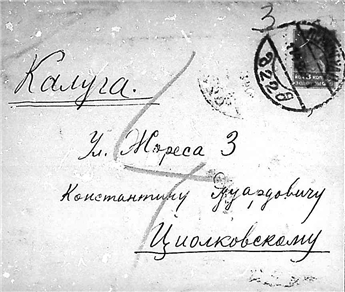 3
Калуга.
Ул. Жореса 3
Константину Эдуардовичу
Циолковскому